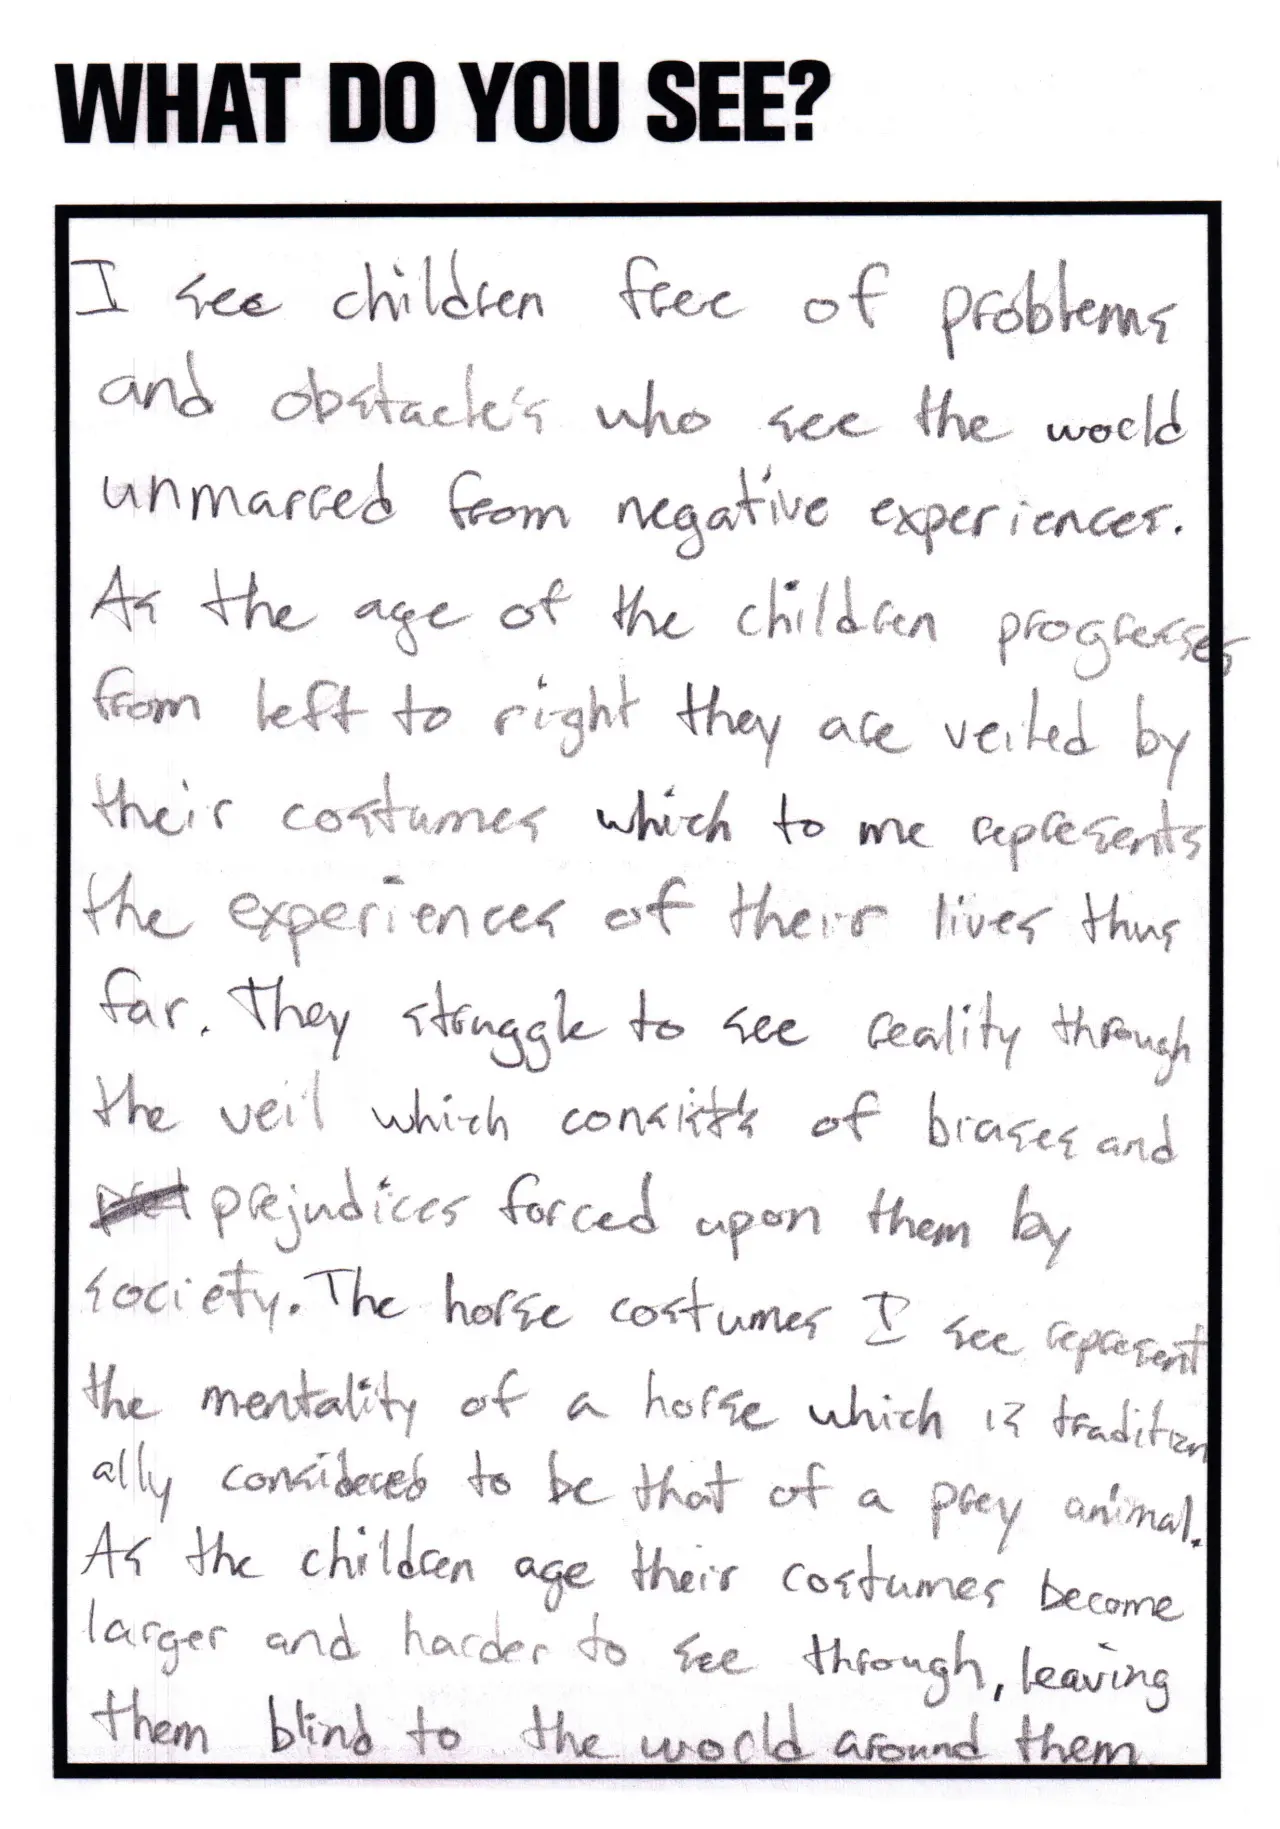 WHAT DO YOU SEE?
I see children free of problems
and obstacle's who see the world
unmarred from negative experiences.
As the age of the children progresses
from left to right they are veiled by
their costumes which to me represents
the experiences of their lives thus
far. They struggle to see reality through
the veil which consists of biases and
prejudices forced upon them by
society. The horse costumes I see represent
the mentality of a horse which is tradition
ally considered to be that of a prey animal.
As the children age their costumes become
larger and harder to see through, leaving
them blind to the world around them